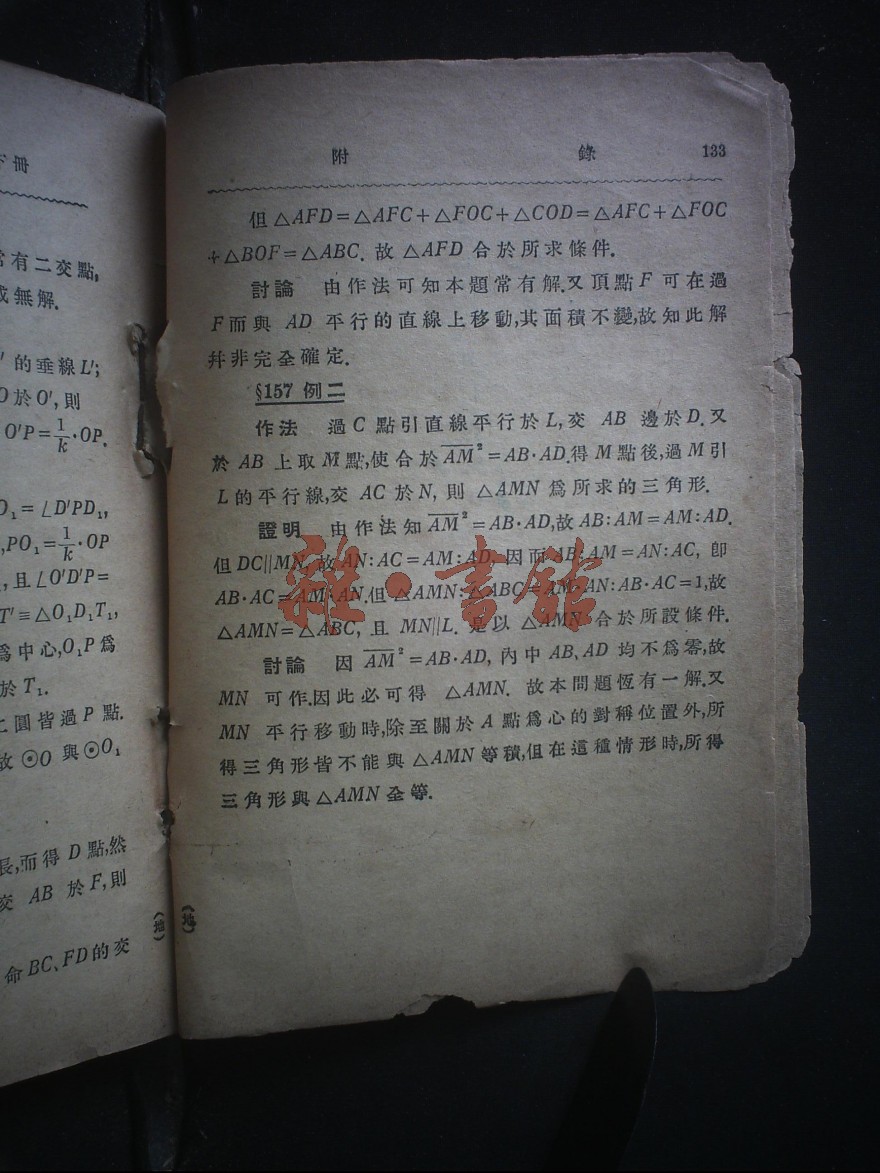 下冊
常有二交點,
或無解.
的垂線L′;
O於O′, 則
O′P=1/k·OP.
O₁=∠D′PD₁,
,PO₁=1/k·OP
,且∠O′D′P=
T′≡△O₁D₁T₁,
爲中心,O₁P爲
於T₁.
二圓皆過P點.
故⊙O與⊙O₁
長,而得D點,然
交 AB 於F,則
命BC、FD的交
(地)
附 錄 133
但△AFD=△AFC+△FOC+△COD=△AFC+△FOC
+△BOF=△ABC. 故△AFD合於所求條件.
討論 由作法可知本題常有解.又頂點F可在過
F而與 AD 平行的直線上移動,其面積不變,故知此解
幷非完全確定.
§157 例二
作法 過C點引直線平行於L,交 AB 邊於D.又
於 AB 上取M點,使合於AM²=AB·AD.得M點後,過M引
L的平行線,交 AC 於N, 則 △AMN 爲所求的三角形.
證明 由作法知AM²=AB·AD,故AB:AM=AM:AD.
但DC||MN, 故AN:AC=AM:AD, 因而AB:AM=AN:AC, 卽
AB·AC=AM·AN.但△AMN:△ABC=AM·AN:AB·AC=1,故
△AMN=△ABC, 且 MN||L. 是以 △AMN合於所設條件.
討論 因 AM²=AB·AD, 內中AB、AD 均不爲零,故
MN 可作.因此必可得 △AMN. 故本問題恆有一解.又
MN 平行移動時,除至關於A點爲心的對稱位置外,所
得三角形皆不能與△AMN等積,但在這種情形時,所得
三角形與△AMN全等.
(地)
雜·書館